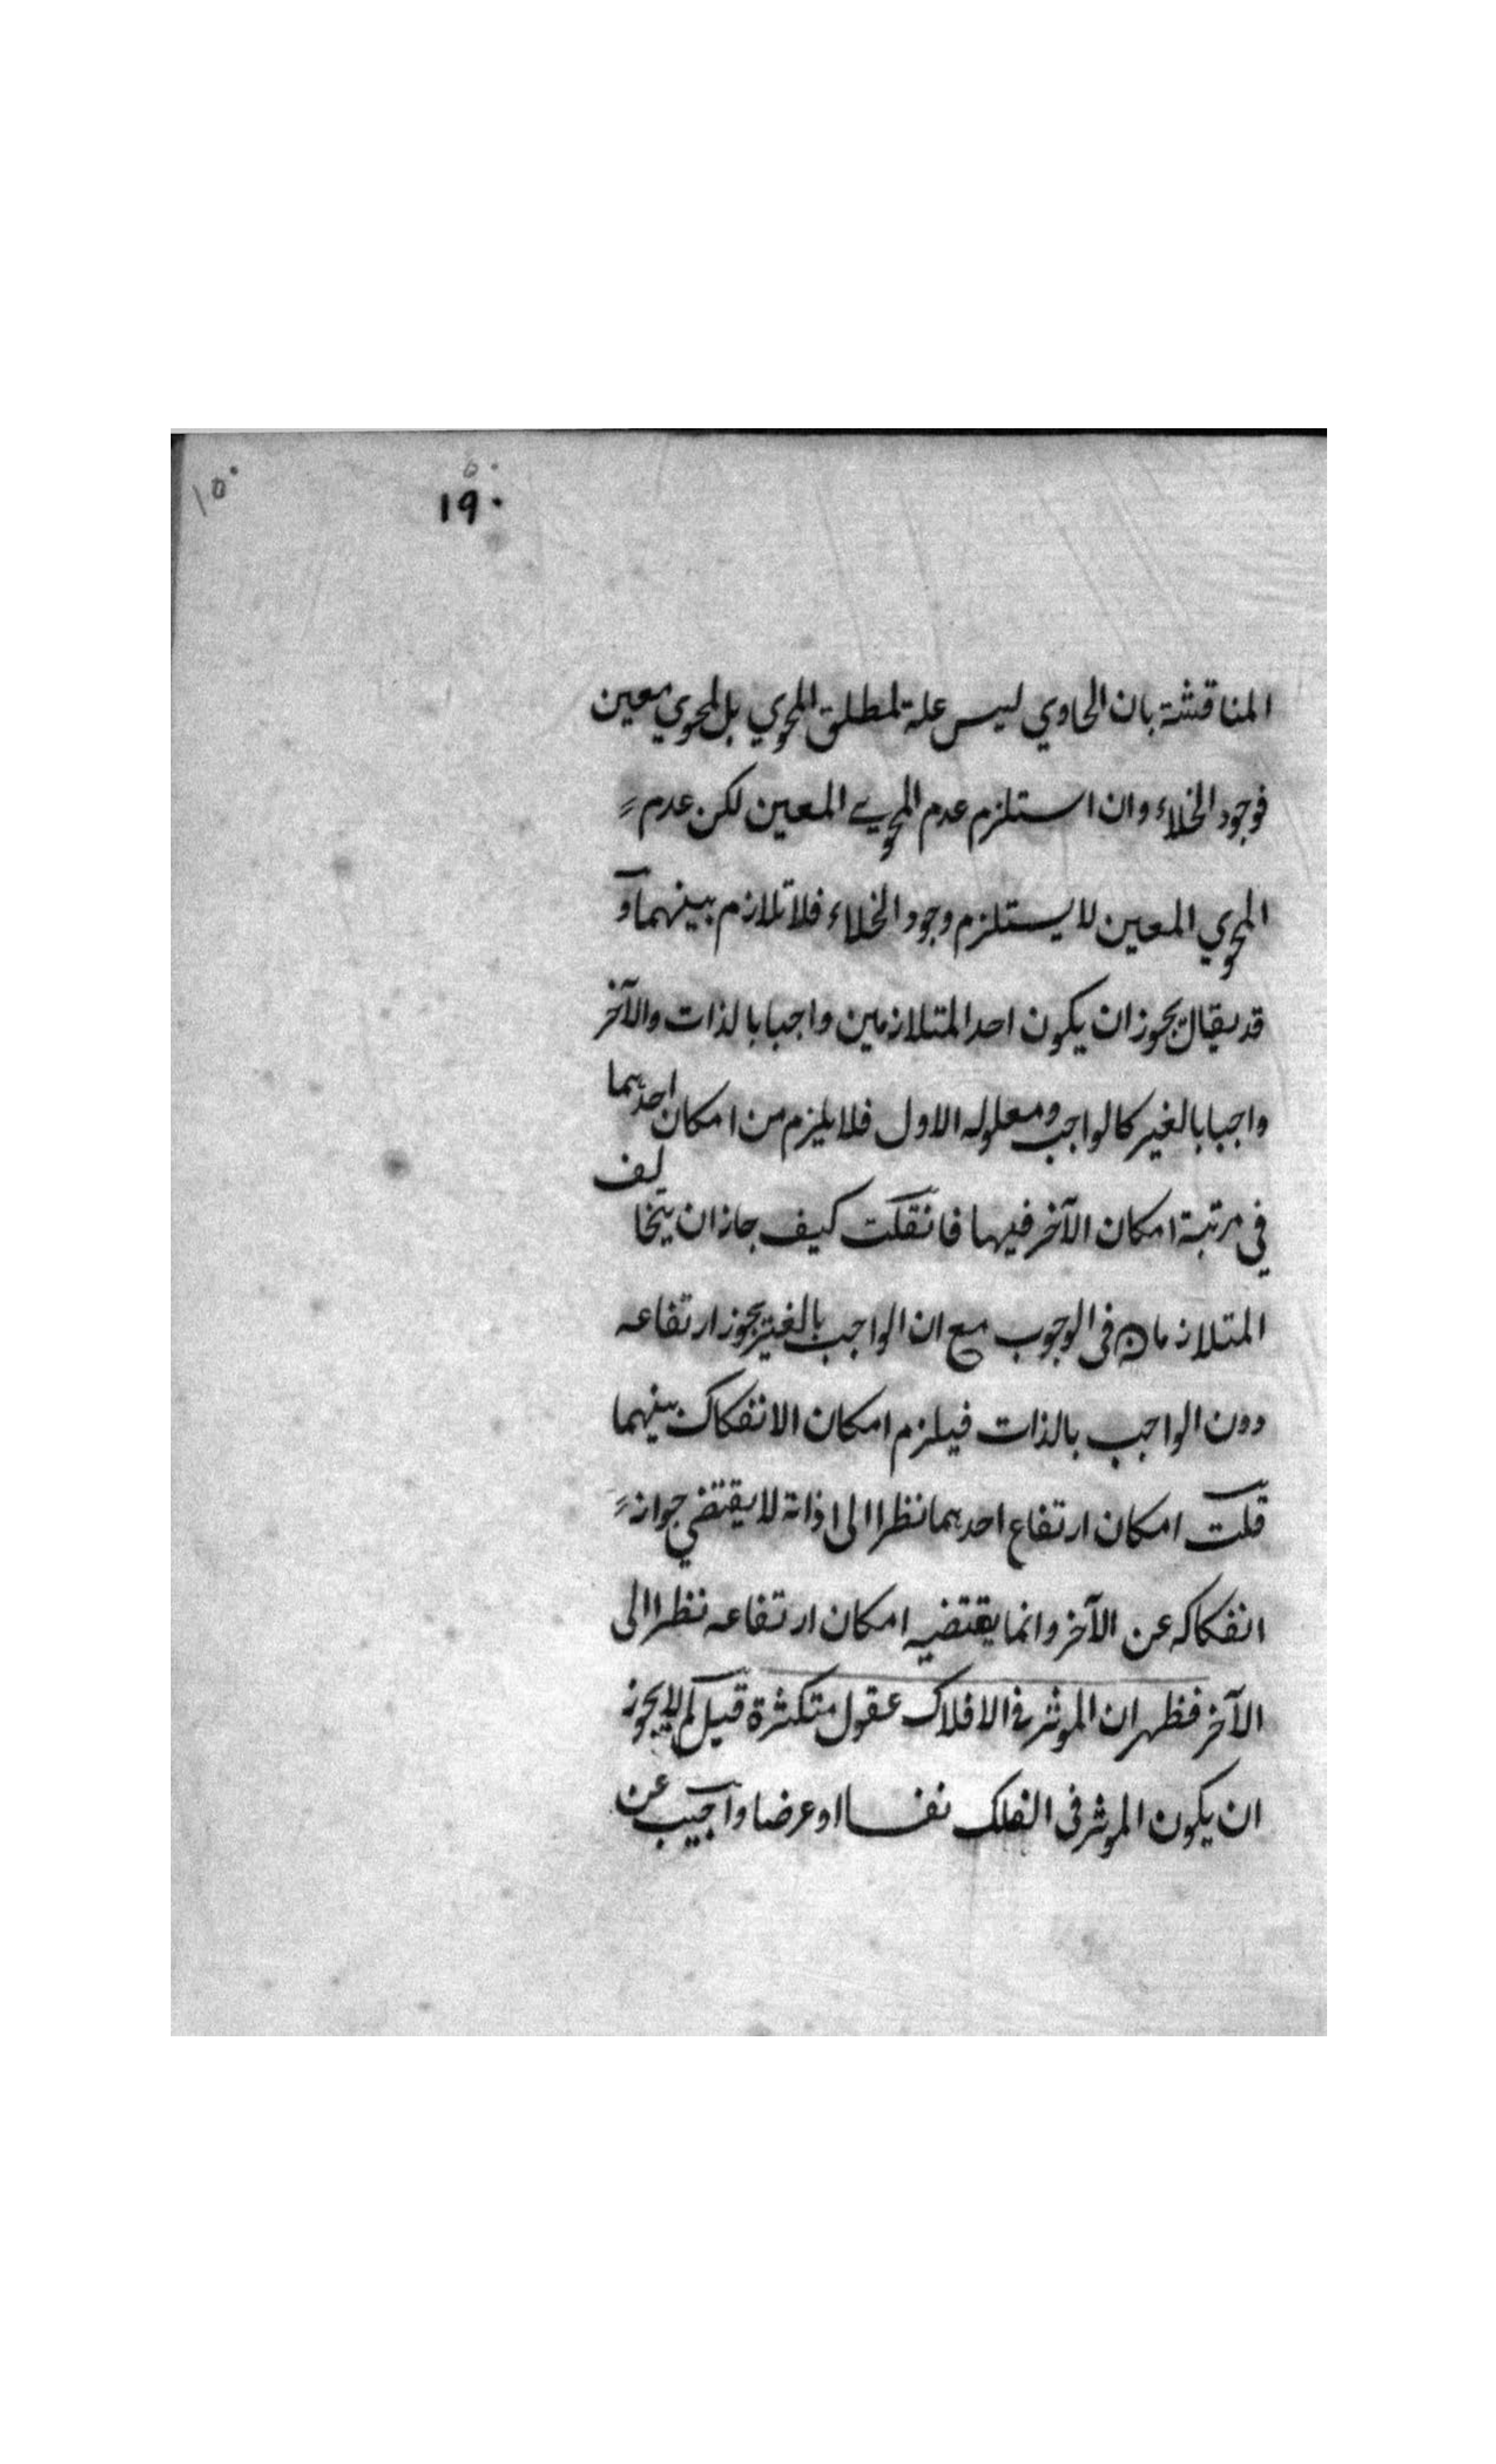 ١٥٠
٥٠
١٩٠
المناقشة بان الحاوي ليس علة لمطلق المحوي بل لمحوي معين
فوجود الخلاء وان استلزم عدم المحوي المعين لكن عدم
المحوي المعين لا يستلزم وجود الخلاء فلا تلازم بينهما و
قد يقال يجوز ان يكون احد المتلازمين واجبا بالذات والآخر
واجبا بالغير كالواجب ومعلوله الاول فلا يلزم من امكان احدهما
في مرتبة امكان الآخر فيها فان قلت كيف جاز ان يتخالف
المتلازمان في الوجوب مع ان الواجب بالغير يجوز ارتفاعه
دون الواجب بالذات فيلزم امكان الانفكاك بينهما
قلت امكان ارتفاع احدهما نظرا الى اذاته لا يقتضي جواز
انفكاكه عن الآخر وانما يقتضيه امكان ارتفاعه نظرا الى
الآخر فظهر ان الموثر في الافلاك عقول متكثرة قيل لم لا يجوز
ان يكون الموثر في الفلك نفسا او عرضا واجيب عن